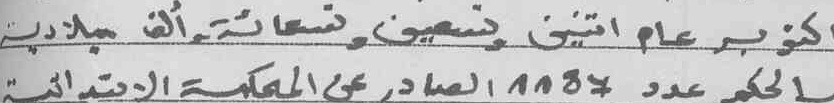 اكتوبر عام اثنين وتسعين وتسعمائة وألف ميلادية
بالحكم عدد 1187 الصادر عن المحكمة الابتدائية